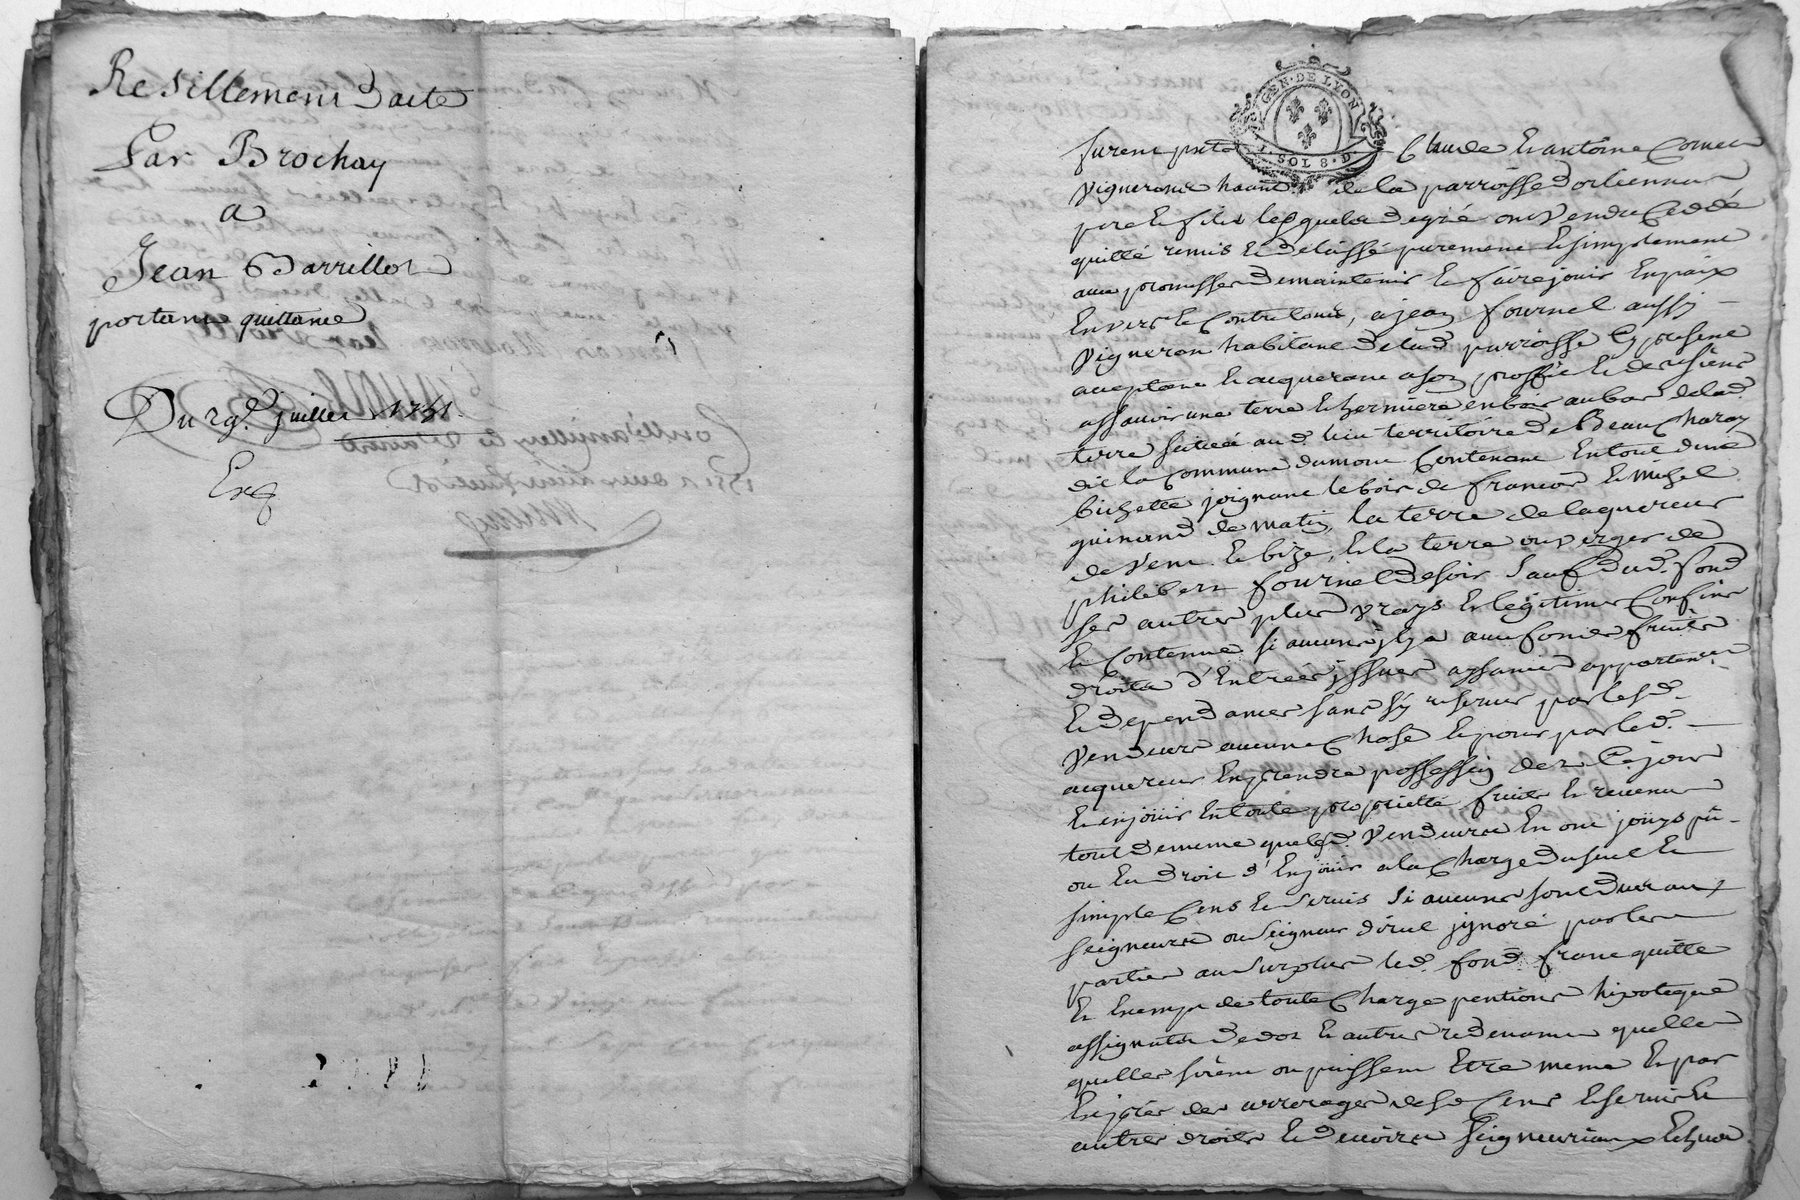 Resillement d'acte
Par Brochay
a
Jean Barrillot
portant quittance
Du 19e juillet 1751
Exp
GEN · DE LYON
1 · SOL 8 · D ·
furent pnts Claude et antoine Cornet
vignerons habnts de la parroisse
pere et fils lesquels de gré ont vendu Ceddé
quitté remis et delaissé purement et simplement
avec promesse de maintenir et faire jouir en paix
Envers et Contre tous, a jean fournel aussi
Vigneron habitant de lad parroisse Cy present
acceptant et acquerant a son proffit et des siens
assavoir une terre et hermiere en bois au bas de lad.
terre scituée aud. lieu territoire de Beaucharay
dit la Commune du mont Contenant En tout d'une
bichette joignant le bois de francois et michel
guinand de matin, la terre de laquereur
de vent et bize, et la terre ou verger de
philibert fournel de soir sauf dud. fond
ses autres plus vrays et legitimes Confins
et Contenue si aucuns jl y a avec fonds fruits
droits d'Entrées jssues aysances appartences
et dependances sans s'y reserver par lesd.
Vendeurs aucune Chose et pour par led.
acquereur En prendre possession des Ce jour
et en joüir En toute proprietté fruits et revenus
tout de meme que lesd. Vendeurs En ont joüys pû
ou eu droit d'En joüir a la Charge du seul et
simple Cens et servis si aucuns sont dus aux
seigneurs ou seigneur direct jgnoré par les
parties au surplus led. fond franc quitte
et Exempt de toute Charge pentions hipoteque
assignats de dot et autres redevances quelles
quelles soient ou puissent Etre meme Et par
Exprés des arrerages desd Cens et servis et
autres droits et devoirs seigneuriaux Echus